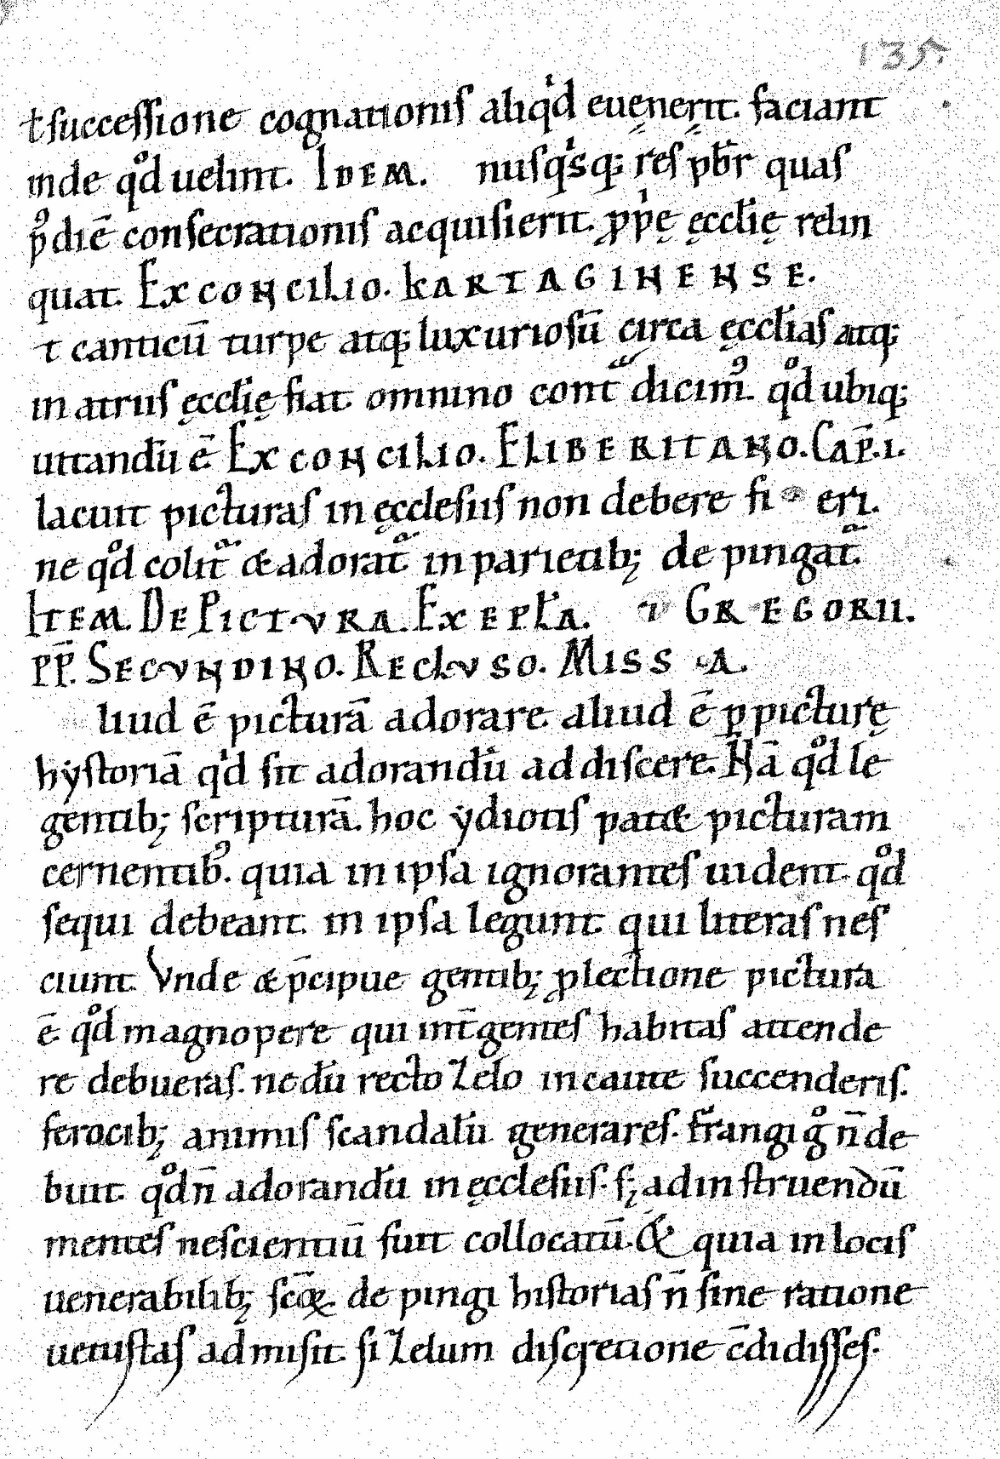 135.
ł successione cognationis aliqͥd euenerit. faciant
inde qͦd uelint. IDEM. nusqͥsq; res pb̄r quas
pͦ diē consecrationis acquisierit. ꝓpͥę ęcclię relin
quat. EX CONCILIO. KARTAGINENSE.
t canticū turpe atq; luxuriosū circa ęcclīas atq;
in atriis ęcclię fiat omnino contᷓdicimꝰ. qͦd ubiq;
uitandū ē EX CONCILIO. ELIBERITANO. CAP̄.I.
lacuit picturas in ęcclesiis non debere fieri.
ne qͦd colitᷓ & adoratᷓ in parietib; de pingatᷓ.
ITEM. DE PICTVRA. EX EPŁA. GREGORII.
PP̄. SECVNDINO. RECLVSO. MISSA.
liud ē picturā adorare aliud ē ꝑ picturę
hẏstoriā qͥd sit adorandū addiscere. Nā qͦd le
gentib; scripturā. hoc ẏdiotis pat& picturam
cernentibꝰ. quia in ipsa ignorantes uident qͦd
sequi debeant. in ipsa legunt qui literas nes
ciunt. Vnde & p̄cipue gentib; ꝓ lectione pictura
ē. qͦd magnopere qui int̄ gentes habitas attende
re debueras. ne dū recto zelo incaute succenderis.
ferocib; animis scandalū generares. frangi gͦ n̄ de
buit qͦd n̄ adorandū in ęcclesiis. s; ad instruendū
mentes nescientiū fuit collocatū. & quia in locis
uenerabilib; scōꝝ de pingi historias n̄ sine ratione
uetustas admisit. si zelum discretione c̄didisses.